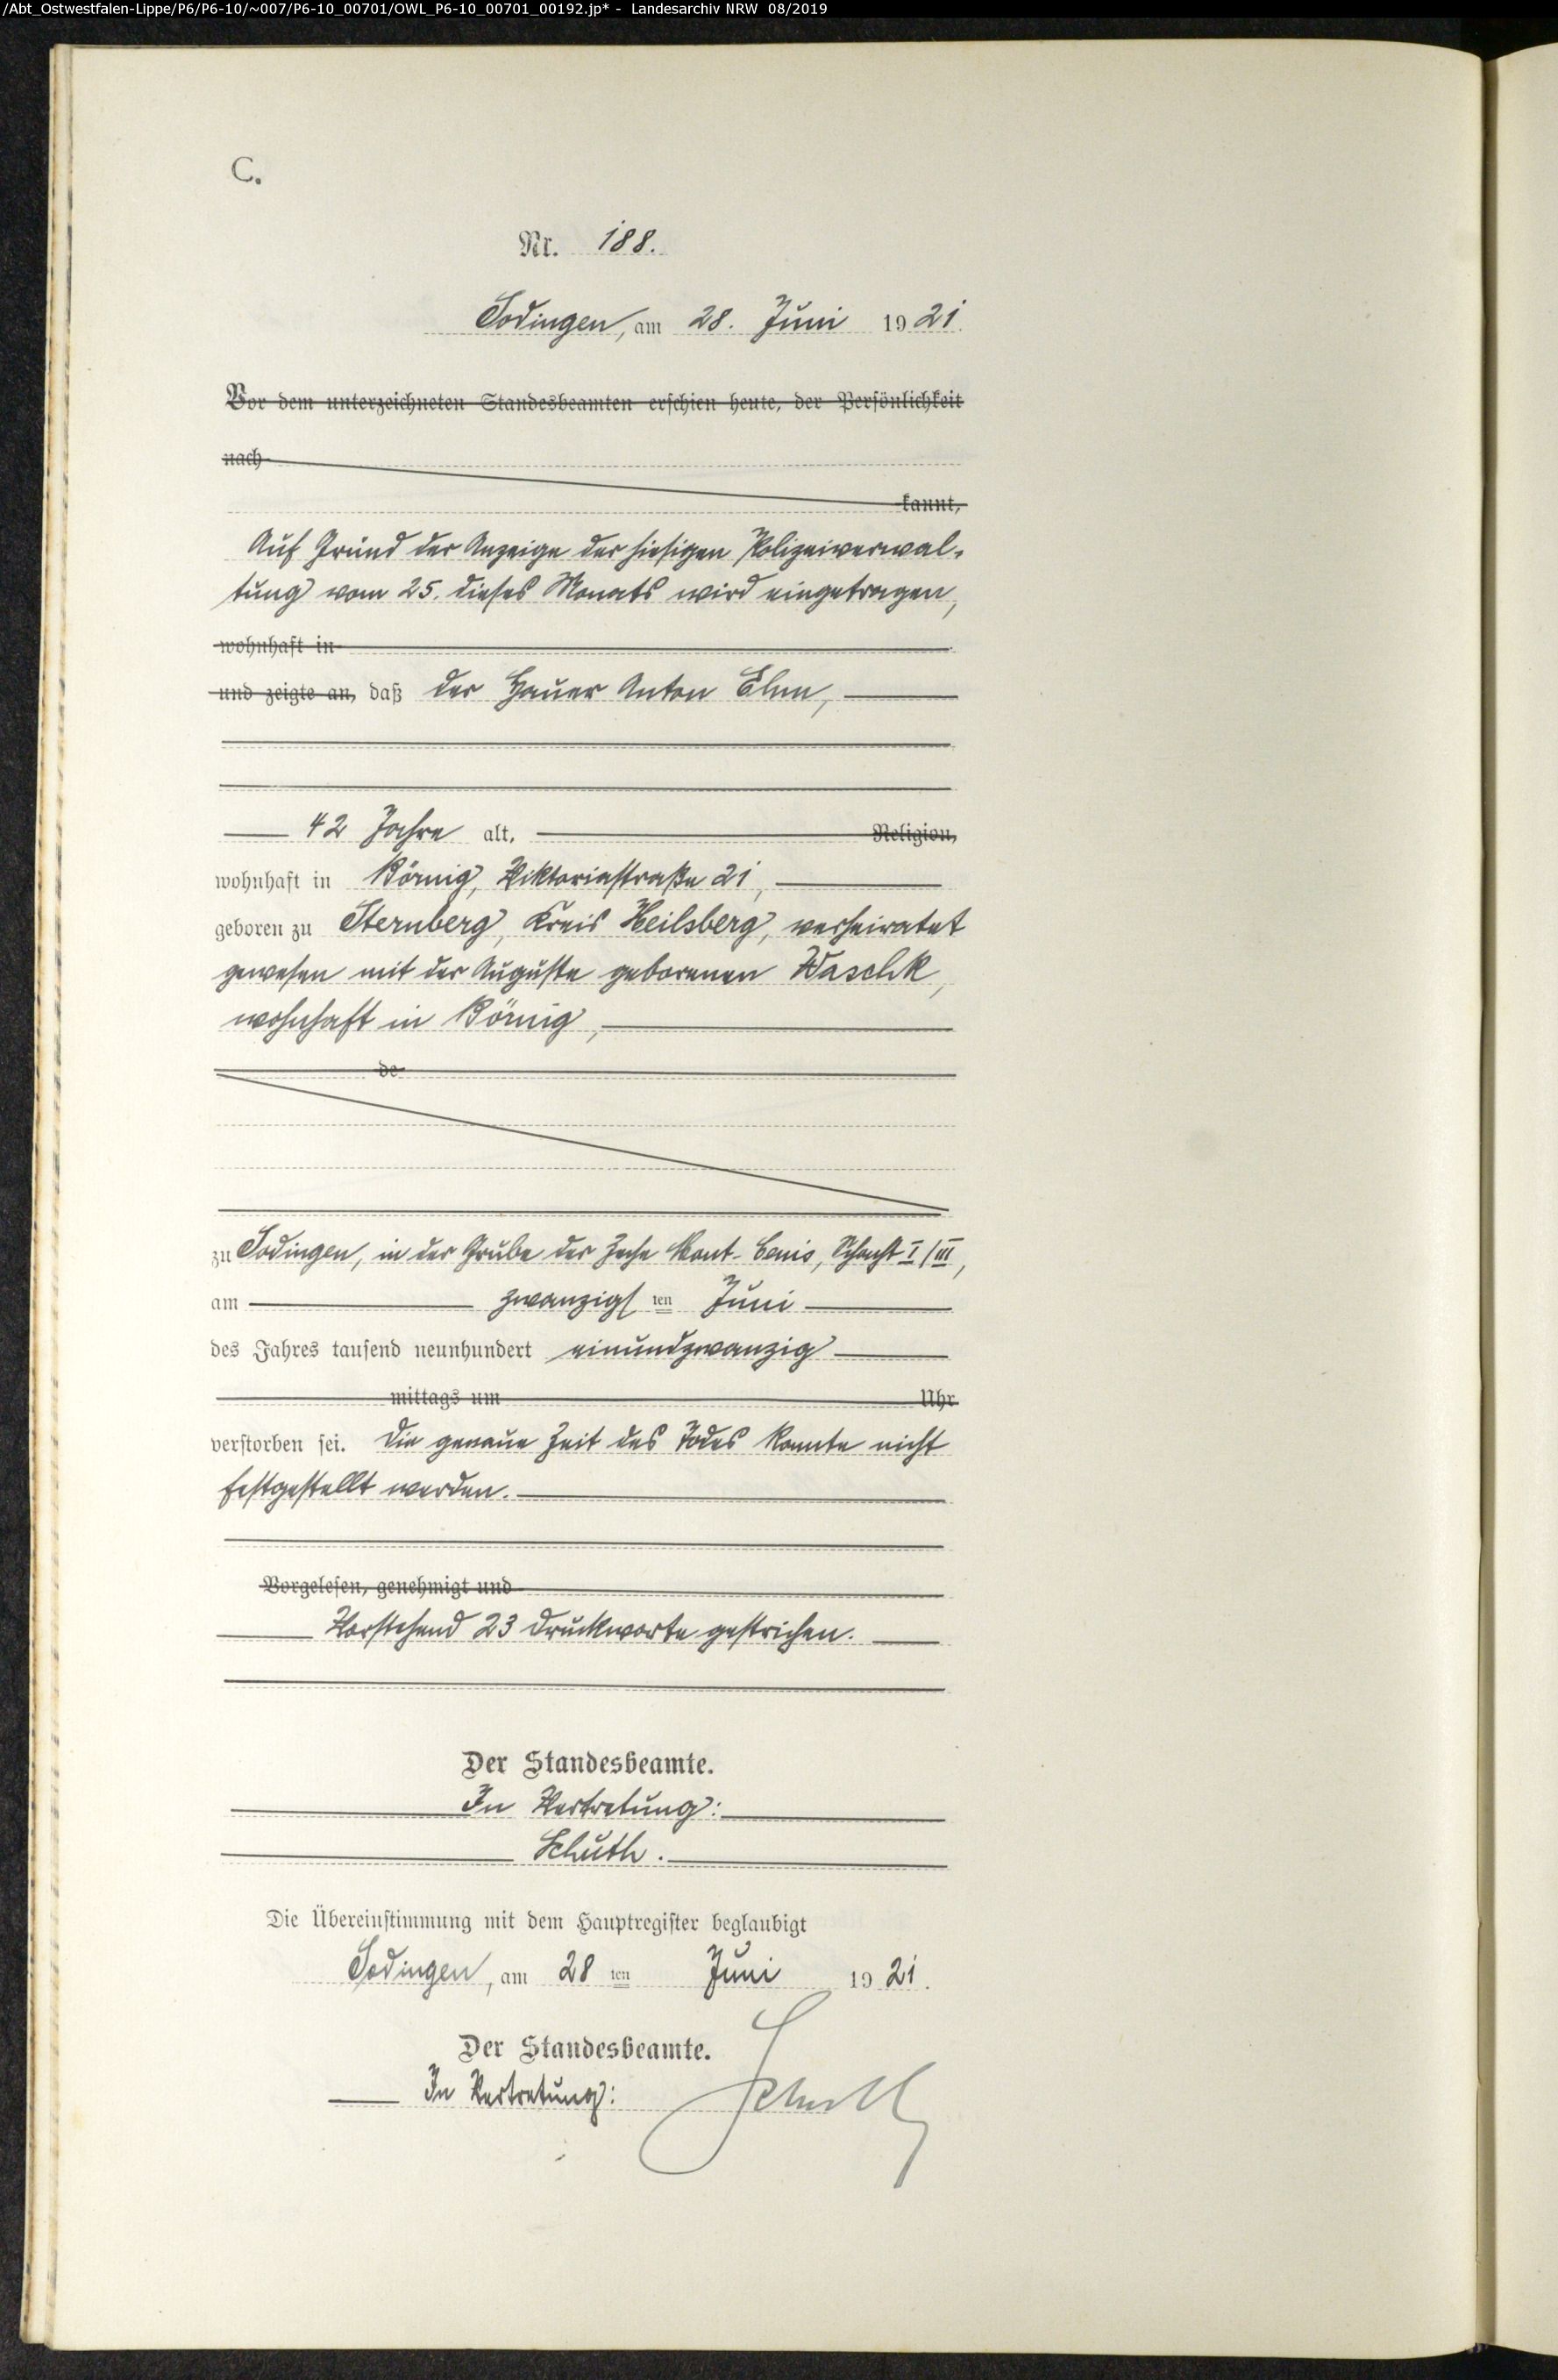 /Abt_Ostwestfalen-Lippe/P6/P6-10/~007/P6-10_00701/OWL_P6-10_00701_00192.jp* - Landesarchiv NRW 08/2019
C.
Nr. 188.
Sodingen, am 28. Juni 1921.
Vor dem unterzeichneten Standesbeamten erschien heute, der Persönlichkeit
nach
kannt,
Auf Grund der Anzeige der hiesigen Polizeiverwal-
tung vom 25. dieses Monats wird eingetragen,
wohnhaft in
und zeigte an, daß der Hauer Anton Elm,
42 Jahre alt, Religion,
wohnhaft in Börnig, Viktoriastraße 21,
geboren zu Sternberg, Kreis Heilsberg, verheiratet
gewesen mit der Auguste geborenen Waschk,
wohnhaft in Börnig,
de
zu Sodingen, in der Grube der Zeche Mont-Cenis, Schacht I/III,
am zwanzigsten Juni
des Jahres tausend neunhundert einundzwanzig
mittags um Uhr
verstorben sei. Die genaue Zeit des Todes konnte nicht
festgestellt werden.
Vorgelesen, genehmigt und
Vorstehend 23 Druckworte gestrichen.
Der Standesbeamte.
In Vertretung:
Schuth.
Die Übereinstimmung mit dem Hauptregister beglaubigt
Sodingen, am 28ten Juni 1921.
Der Standesbeamte.
In Vertretung:
Schuth